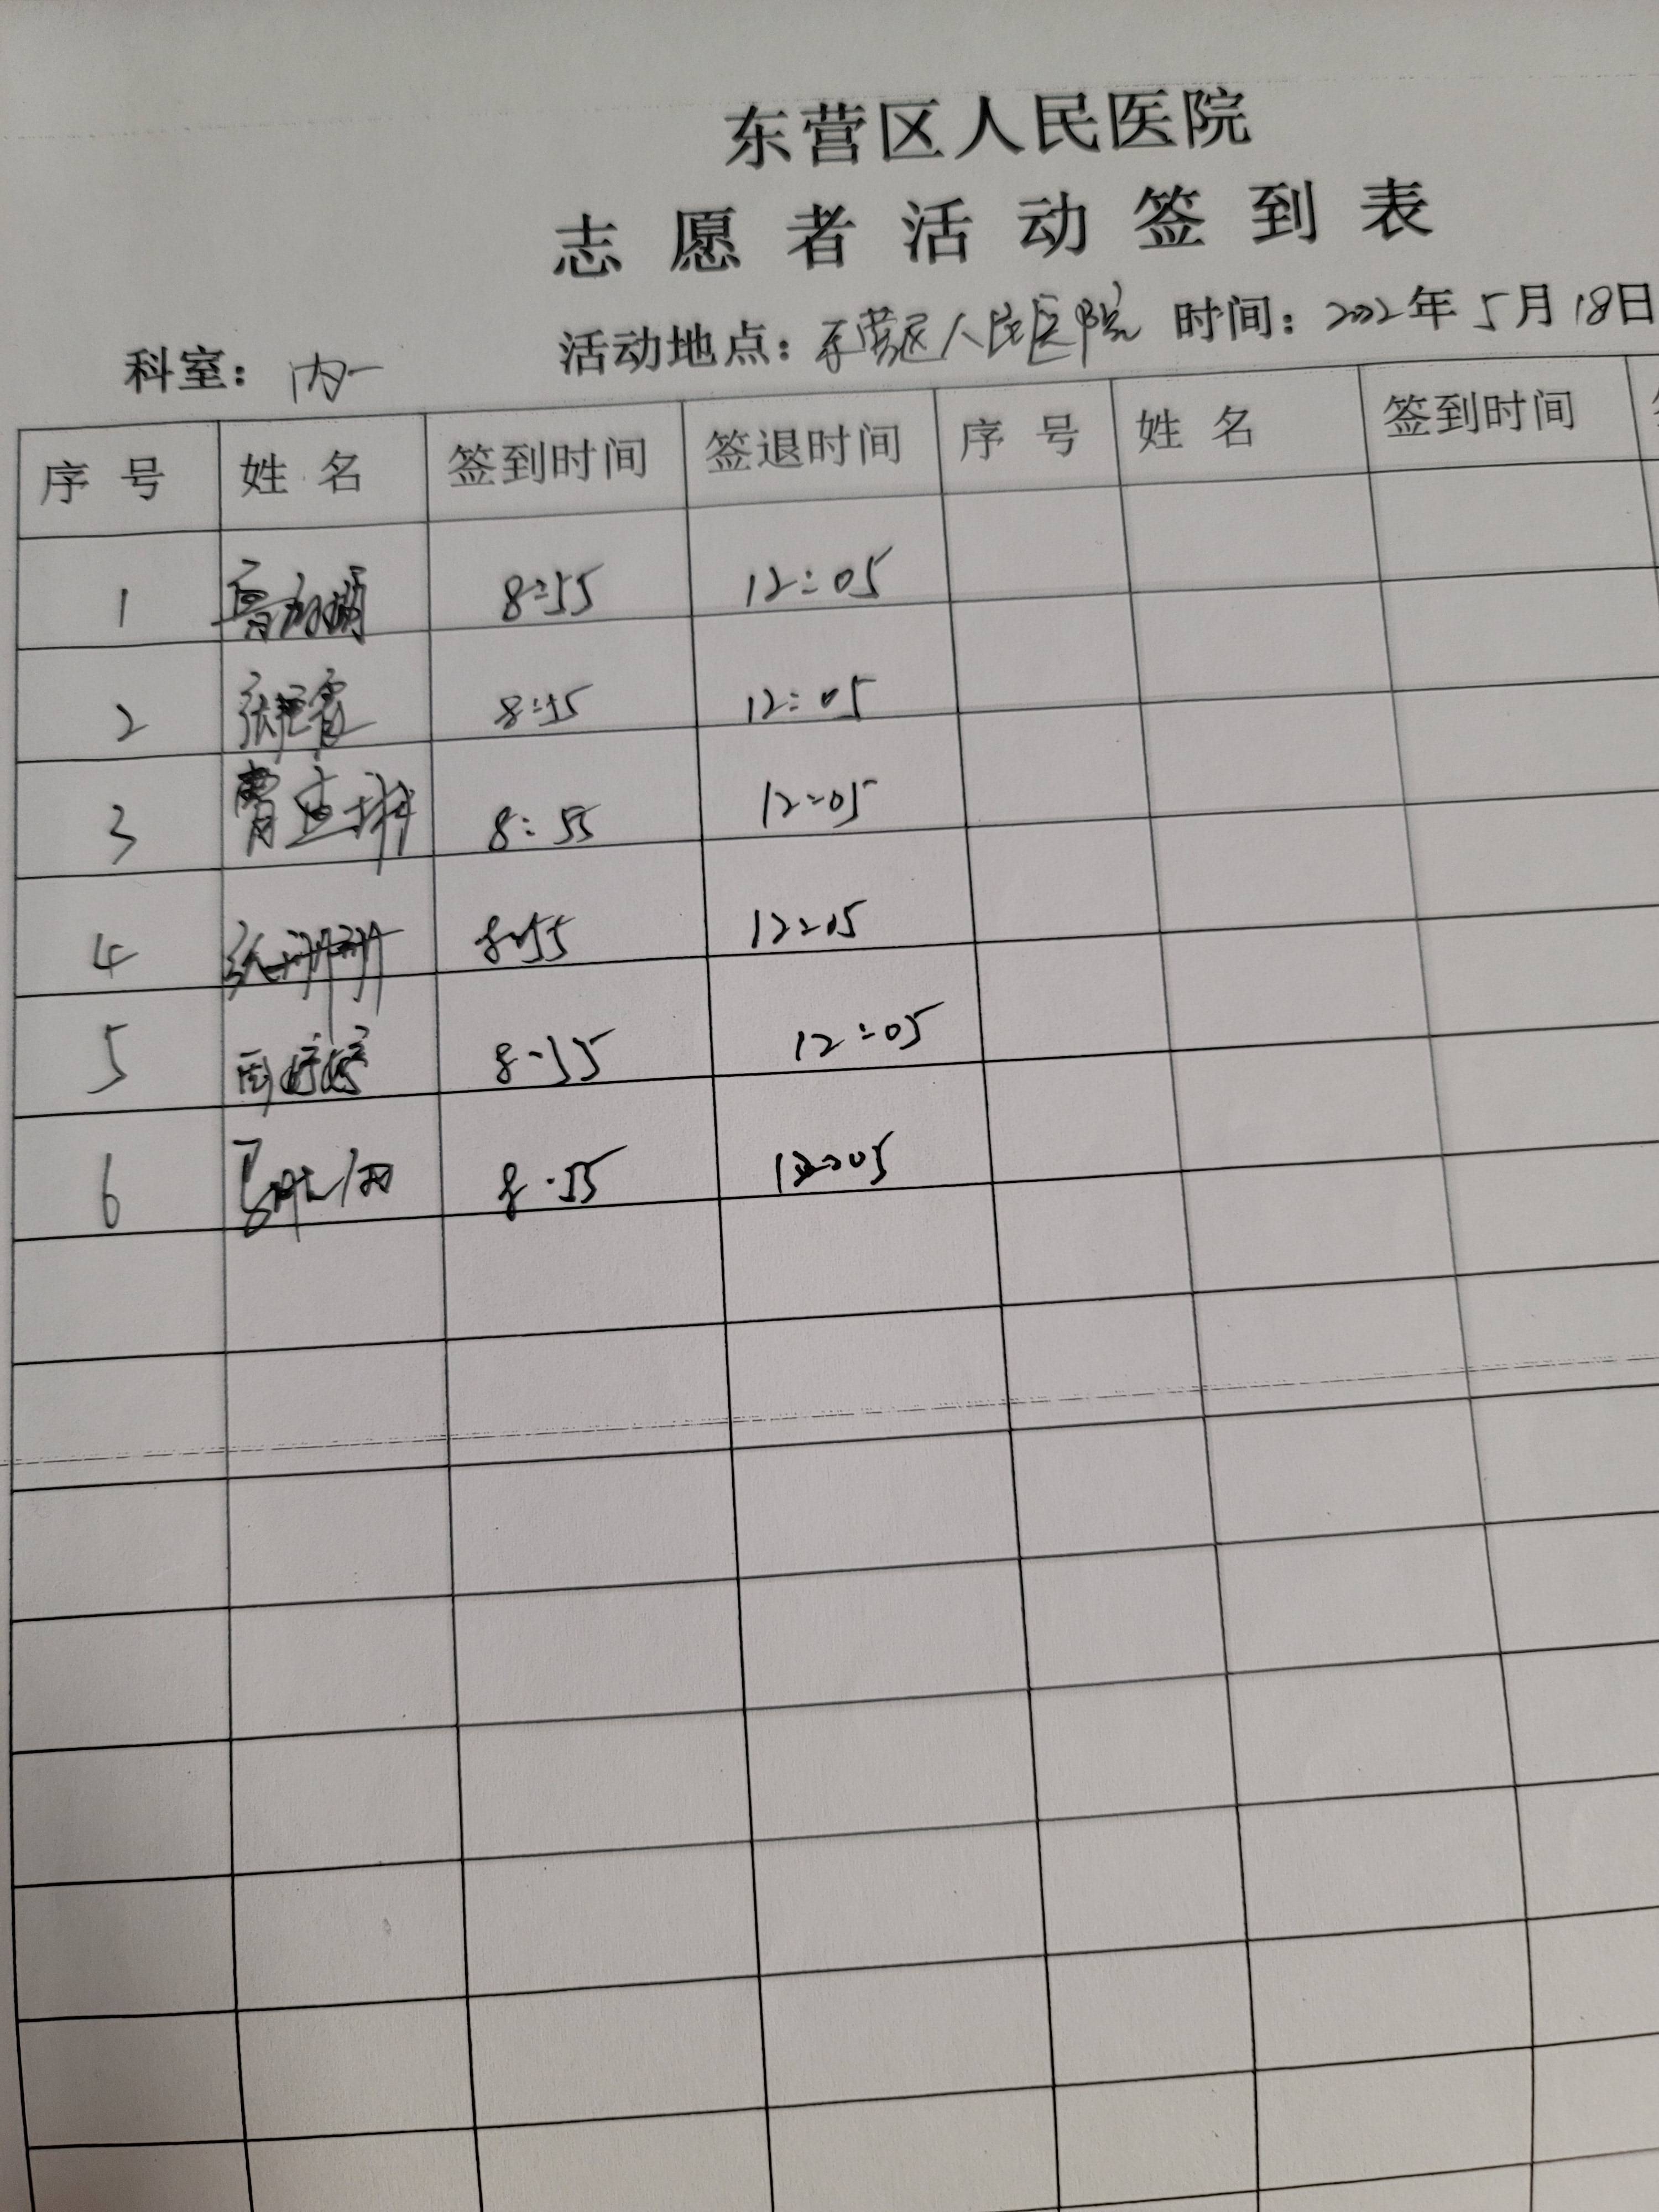 东营区人民医院
志愿者活动签到表
科室：内一 活动地点：东营区人民医院 时间：2022年5月18日
序号 姓名 签到时间 签退时间 序号 姓名 签到时间
1 8:55 12:05
2 张 霞 8:55 12:05
3 8:55 12:05
4 张珊珊 8:55 12:05
5 周婷婷 8:55 12:05
6 8:55 12:05